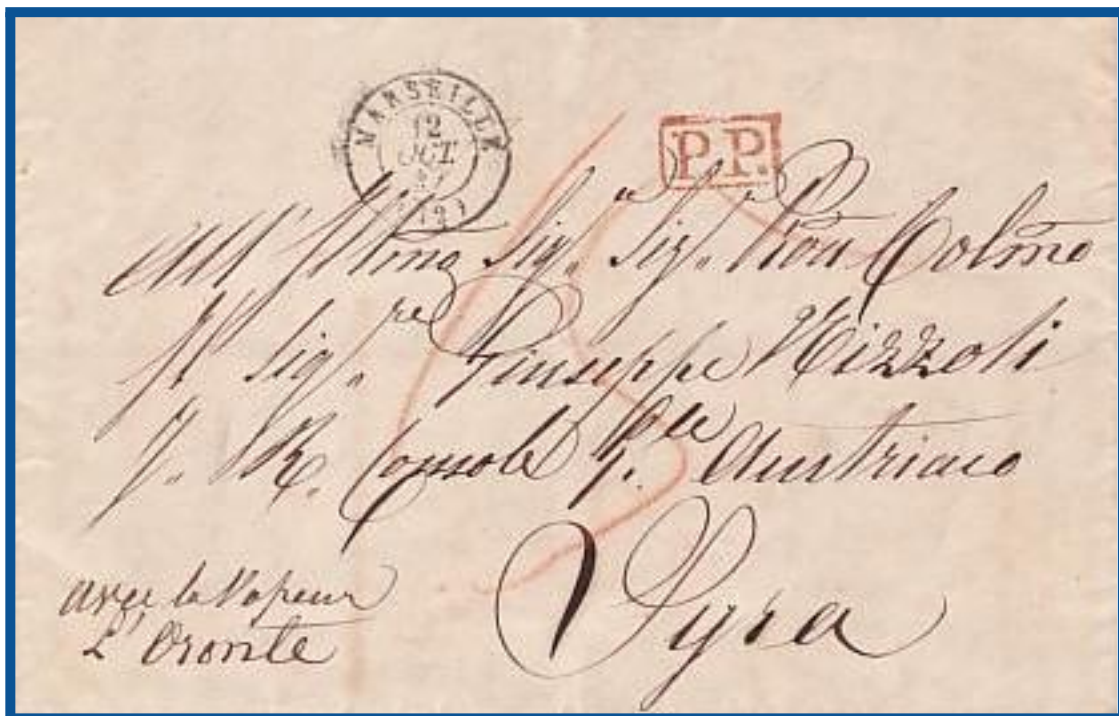 MARSEILLE
12
OCT.
(12)
P.P.
All' Illmo Sigr. Sigr. Pron Colmo
Il Sigre Giuseppe Nizzoli
I. R. Console Gle Austriaco
Syra
avec le Vapeur
L'Oronte